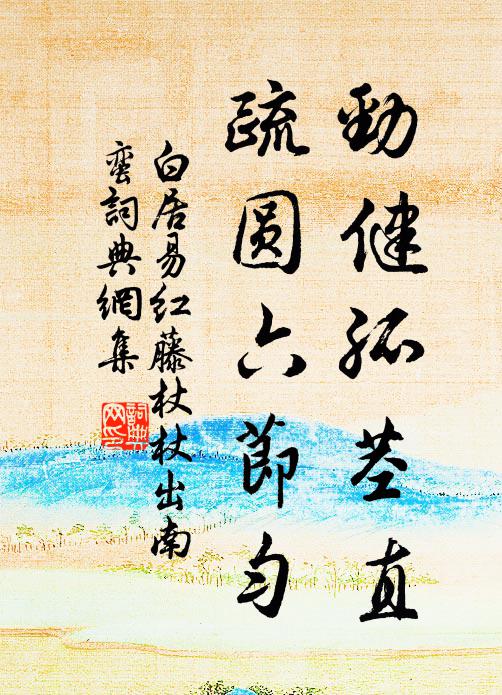 勁健孤莖直
疏圆六節匀
白居易紅藤杖杖出南
蛮詞典網集
詞典网印